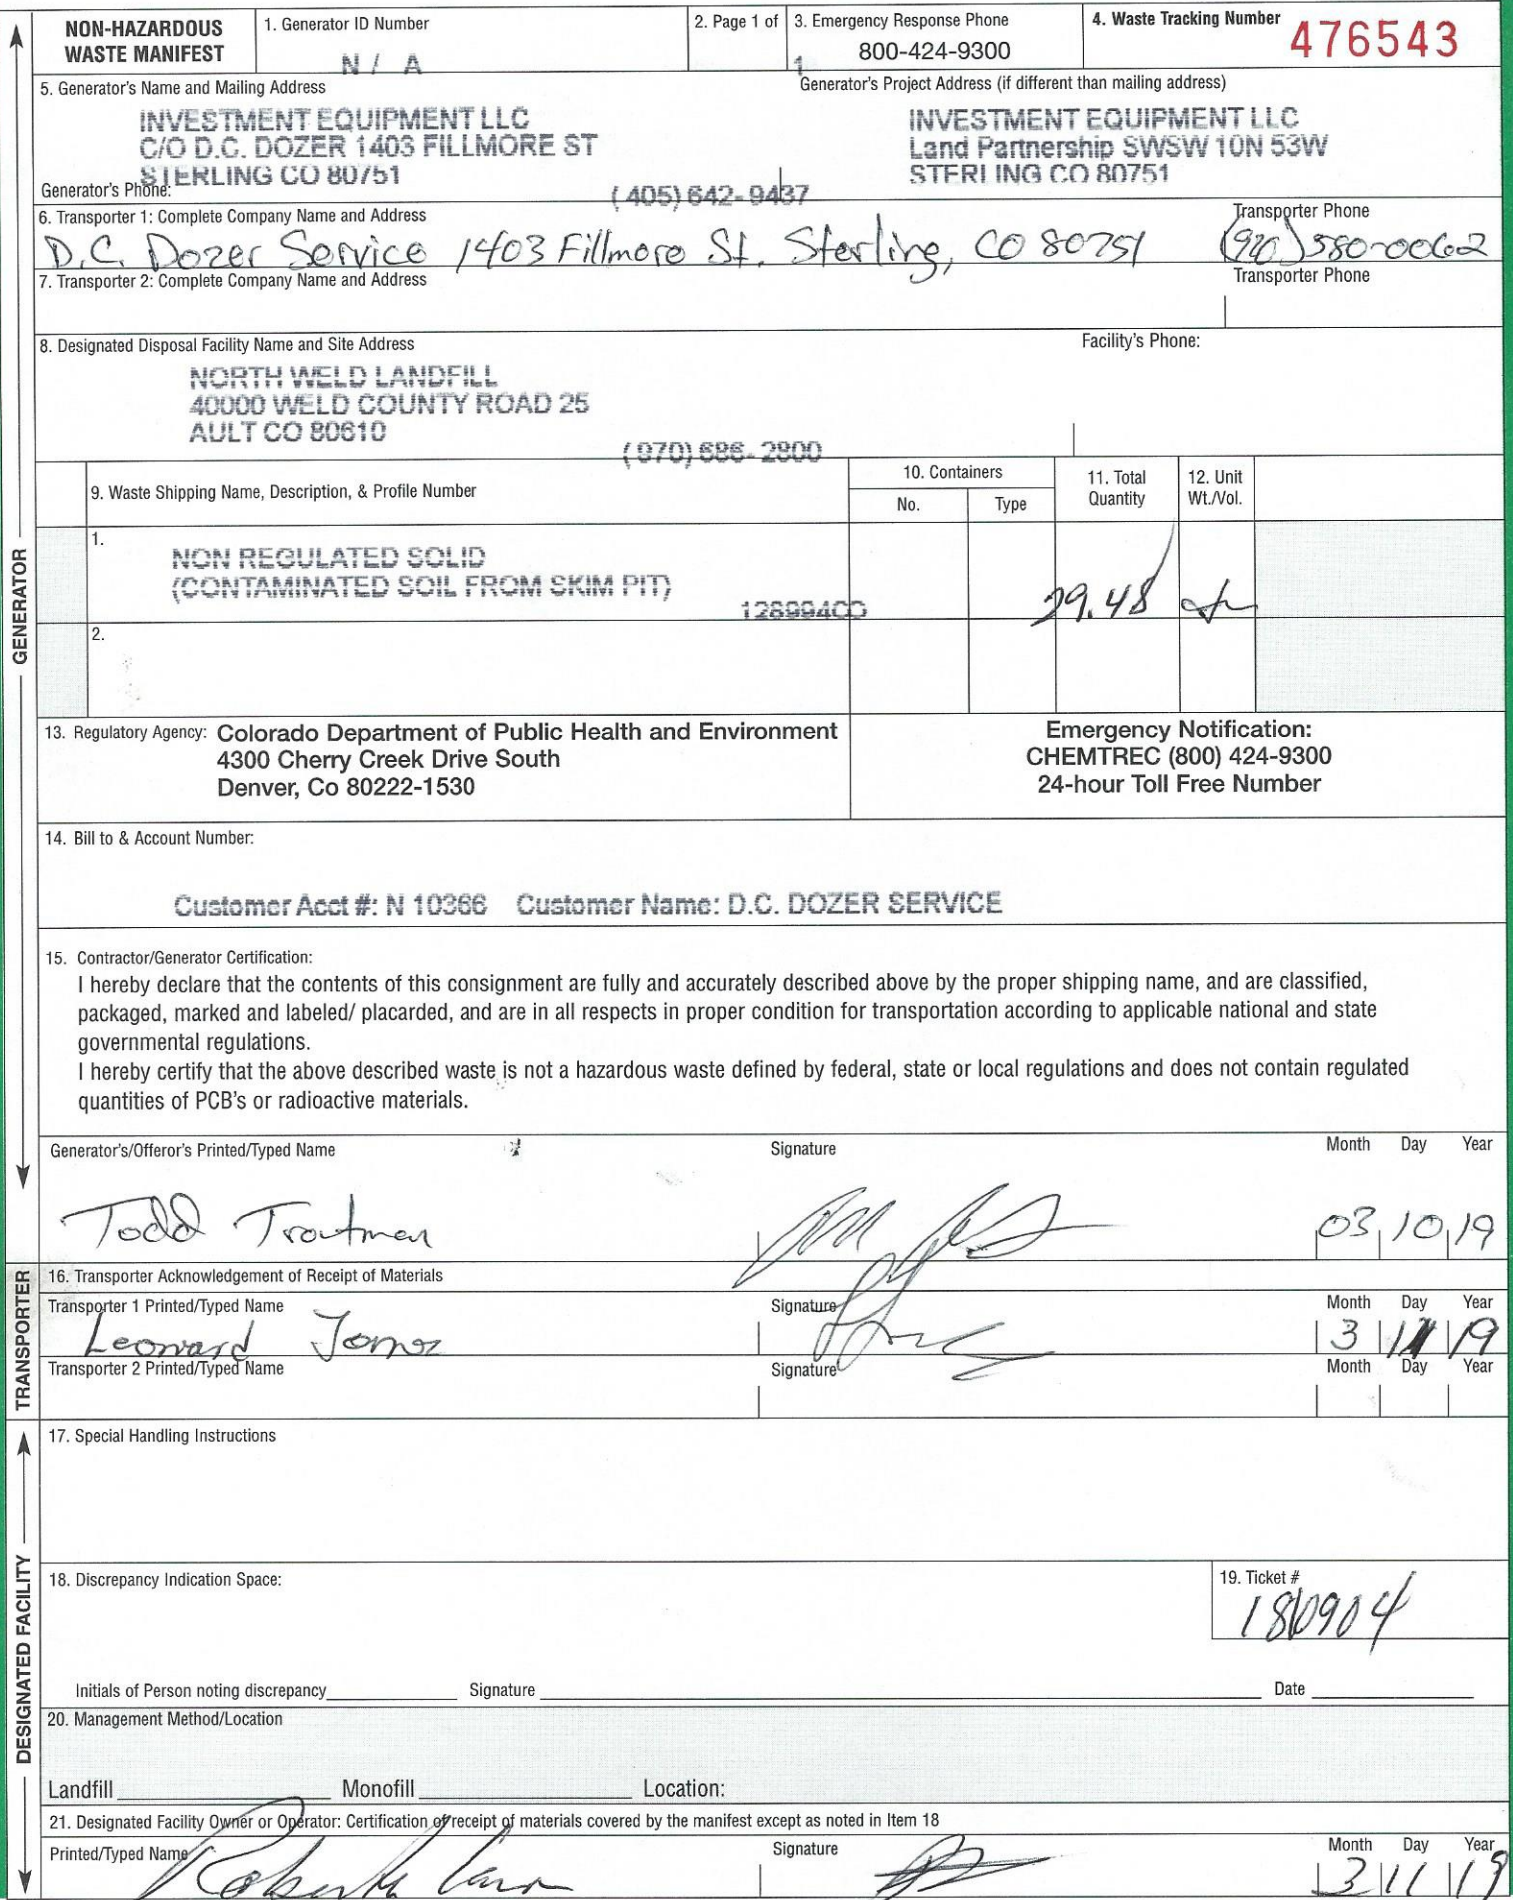 NON-HAZARDOUS
WASTE MANIFEST
1. Generator ID Number
N / A
2. Page 1 of
1
3. Emergency Response Phone
800-424-9300
4. Waste Tracking Number
476543
5. Generator's Name and Mailing Address
INVESTMENT EQUIPMENT LLC
C/O D.C. DOZER 1403 FILLMORE ST
STERLING CO 80751
Generator's Phone:
(405) 642-9437
Generator's Project Address (if different than mailing address)
INVESTMENT EQUIPMENT LLC
Land Partnership SWSW 10N 53W
STERLING CO 80751
6. Transporter 1: Complete Company Name and Address
Transporter Phone
D.C. Dozer Service 1403 Fillmore St. Sterling, CO 80751 (970) 580-0062
7. Transporter 2: Complete Company Name and Address
Transporter Phone
8. Designated Disposal Facility Name and Site Address
Facility's Phone:
NORTH WELD LANDFILL
40000 WELD COUNTY ROAD 25
AULT CO 80610
(970) 686-2800
9. Waste Shipping Name, Description, & Profile Number
10. Containers
No.
Type
11. Total
Quantity
12. Unit
Wt./Vol.
GENERATOR
1.
NON REGULATED SOLID
(CONTAMINATED SOIL FROM SKIM PIT)
128994CO
29.48
2.
13. Regulatory Agency: Colorado Department of Public Health and Environment
4300 Cherry Creek Drive South
Denver, Co 80222-1530
Emergency Notification:
CHEMTREC (800) 424-9300
24-hour Toll Free Number
14. Bill to & Account Number:
Customer Acct #: N 10366 Customer Name: D.C. DOZER SERVICE
15. Contractor/Generator Certification:
I hereby declare that the contents of this consignment are fully and accurately described above by the proper shipping name, and are classified,
packaged, marked and labeled/ placarded, and are in all respects in proper condition for transportation according to applicable national and state
governmental regulations.
I hereby certify that the above described waste is not a hazardous waste defined by federal, state or local regulations and does not contain regulated
quantities of PCB's or radioactive materials.
Generator's/Offeror's Printed/Typed Name
Signature
Month Day Year
Todd Troutman
03 10 19
TRANSPORTER
16. Transporter Acknowledgement of Receipt of Materials
Transporter 1 Printed/Typed Name
Signature
Month Day Year
Leonard Jones
3 11 19
Transporter 2 Printed/Typed Name
Signature
Month Day Year
DESIGNATED FACILITY
17. Special Handling Instructions
18. Discrepancy Indication Space:
19. Ticket #
180904
Initials of Person noting discrepancy
Signature
Date
20. Management Method/Location
Landfill
Monofill
Location:
21. Designated Facility Owner or Operator: Certification of receipt of materials covered by the manifest except as noted in Item 18
Printed/Typed Name
Signature
Month Day Year
3 11 19